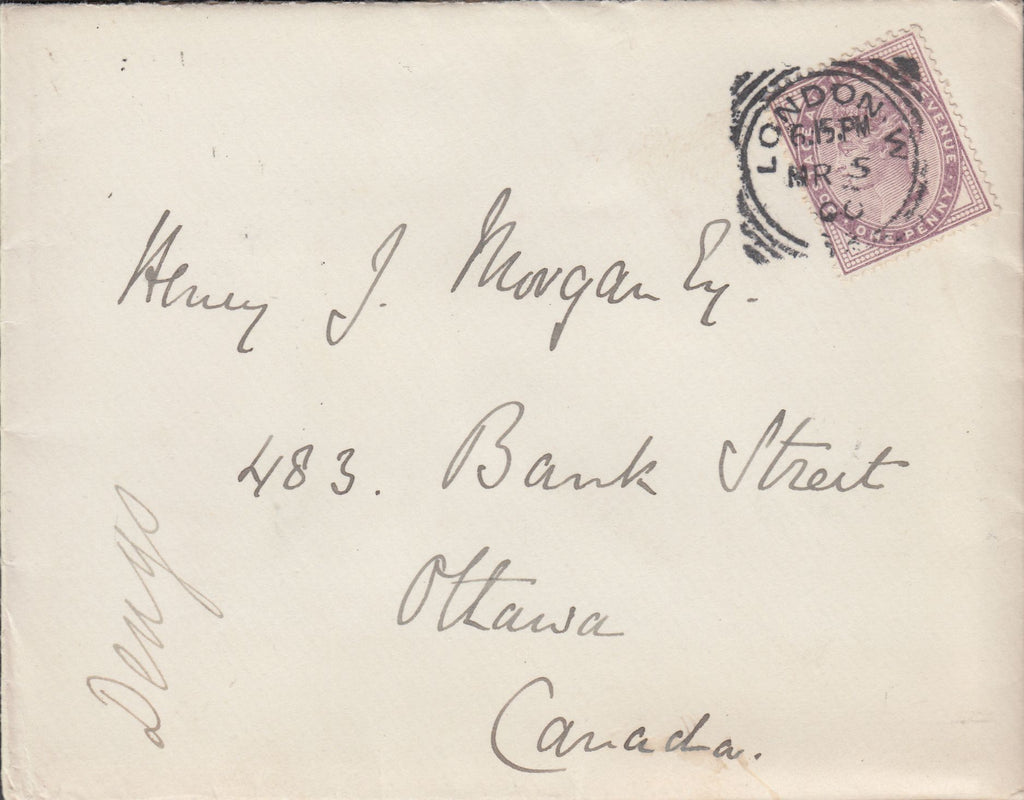 LONDON. W
6.15.PM
MR 5
00
POSTAGE AND INLAND REVENUE
ONE PENNY
Henry J. Morgan Esq.
483. Bank Street
Ottawa
Canada.
Denys